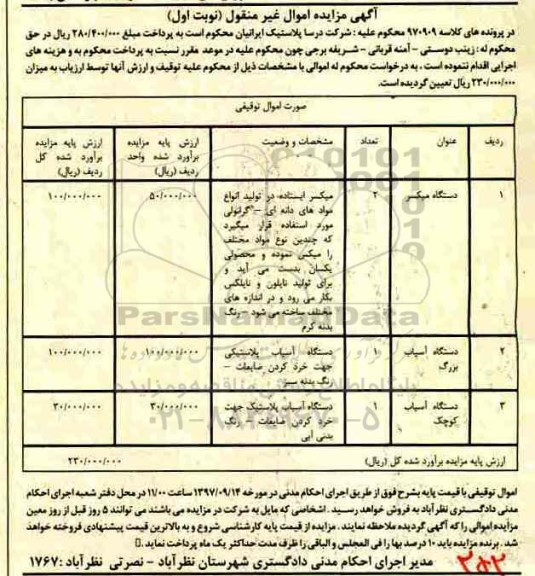 آگهی مزایده اموال غیر منقول (نوبت اول)
در پرونده های کلاسه ۹۷۰۹۰۹ محکوم علیه : شرکت درسا پلاستیک ایرانیان محکوم است به پرداخت مبلغ ۲۸۰/۴۰۰/۰۰۰ ریال در حق
محکوم له : زینب دوستی - آمنه قربانی - شریفه برجی چون محکوم علیه در موعد مقرر نسبت به پرداخت محکوم به و هزینه های
اجرایی اقدام ننموده است ، به درخواست محکوم له اموالی با مشخصات ذیل از محکوم علیه توقیف و ارزش آنها توسط ارزیاب به میزان
۲۳۰/۰۰۰/۰۰۰ ریال تعیین گردیده است.
صورت اموال توقیفی
ردیف
عنوان
تعداد
مشخصات و وضعیت
ارزش پایه مزایده
برآورد شده واحد
ردیف (ریال)
ارزش پایه مزایده
برآورد شده کل
ردیف (ریال)
۱
دستگاه میکسر
۲
میکسر ایستاده در تولید انواع
مواد های دانه ای - گرانولی
مورد استفاده قرار میگیرد
که چندین نوع مواد مختلف
را میکس نموده و محصولی
یکسان بدست می آید و
برای تولید نایلون و نایلکس
بکار می رود و در اندازه های
مختلف ساخته می شود - رنگ
بدنه کرم
۵۰/۰۰۰/۰۰۰
۱۰۰/۰۰۰/۰۰۰
۲
دستگاه آسیاب
بزرگ
۱
دستگاه آسیاب پلاستیکی
جهت خرد کردن ضایعات -
رنگ بدنه سبز
۱۰۰/۰۰۰/۰۰۰
۱۰۰/۰۰۰/۰۰۰
۳
دستگاه آسیاب
کوچک
۱
دستگاه آسیاب پلاستیک جهت
خرد کردن ضایعات - رنگ
بدنی آبی
۳۰/۰۰۰/۰۰۰
۳۰/۰۰۰/۰۰۰
ارزش پایه مزایده برآورد شده کل (ریال)
۲۳۰/۰۰۰/۰۰۰
اموال توقیفی با قیمت پایه بشرح فوق از طریق اجرای احکام مدنی در مورخه ۱۳۹۷/۰۹/۱۴ ساعت ۱۱/۰۰ در محل دفتر شعبه اجرای احکام
مدنی دادگستری نظرآباد به فروش خواهد رسید . اشخاصی که مایل به شرکت در مزایده می باشند می توانند ۵ روز قبل از روز معین
مزایده اموالی را که آگهی گردیده ملاحظه نمایند . مزایده از قیمت پایه کارشناسی شروع و به بالاترین قیمت پیشنهادی فروخته خواهد
شد . برنده مزایده باید ۱۰ درصد بها را فی المجلس و الباقی را ظرف مدت حداکثر یک ماه پرداخت نماید .
مدیر اجرای احکام مدنی دادگستری شهرستان نظرآباد - نصرتی نظرآباد : ۱۷۶۷
ParsNamadData
۰۲۱-۸۸۳۴۹۶۷۰-۵